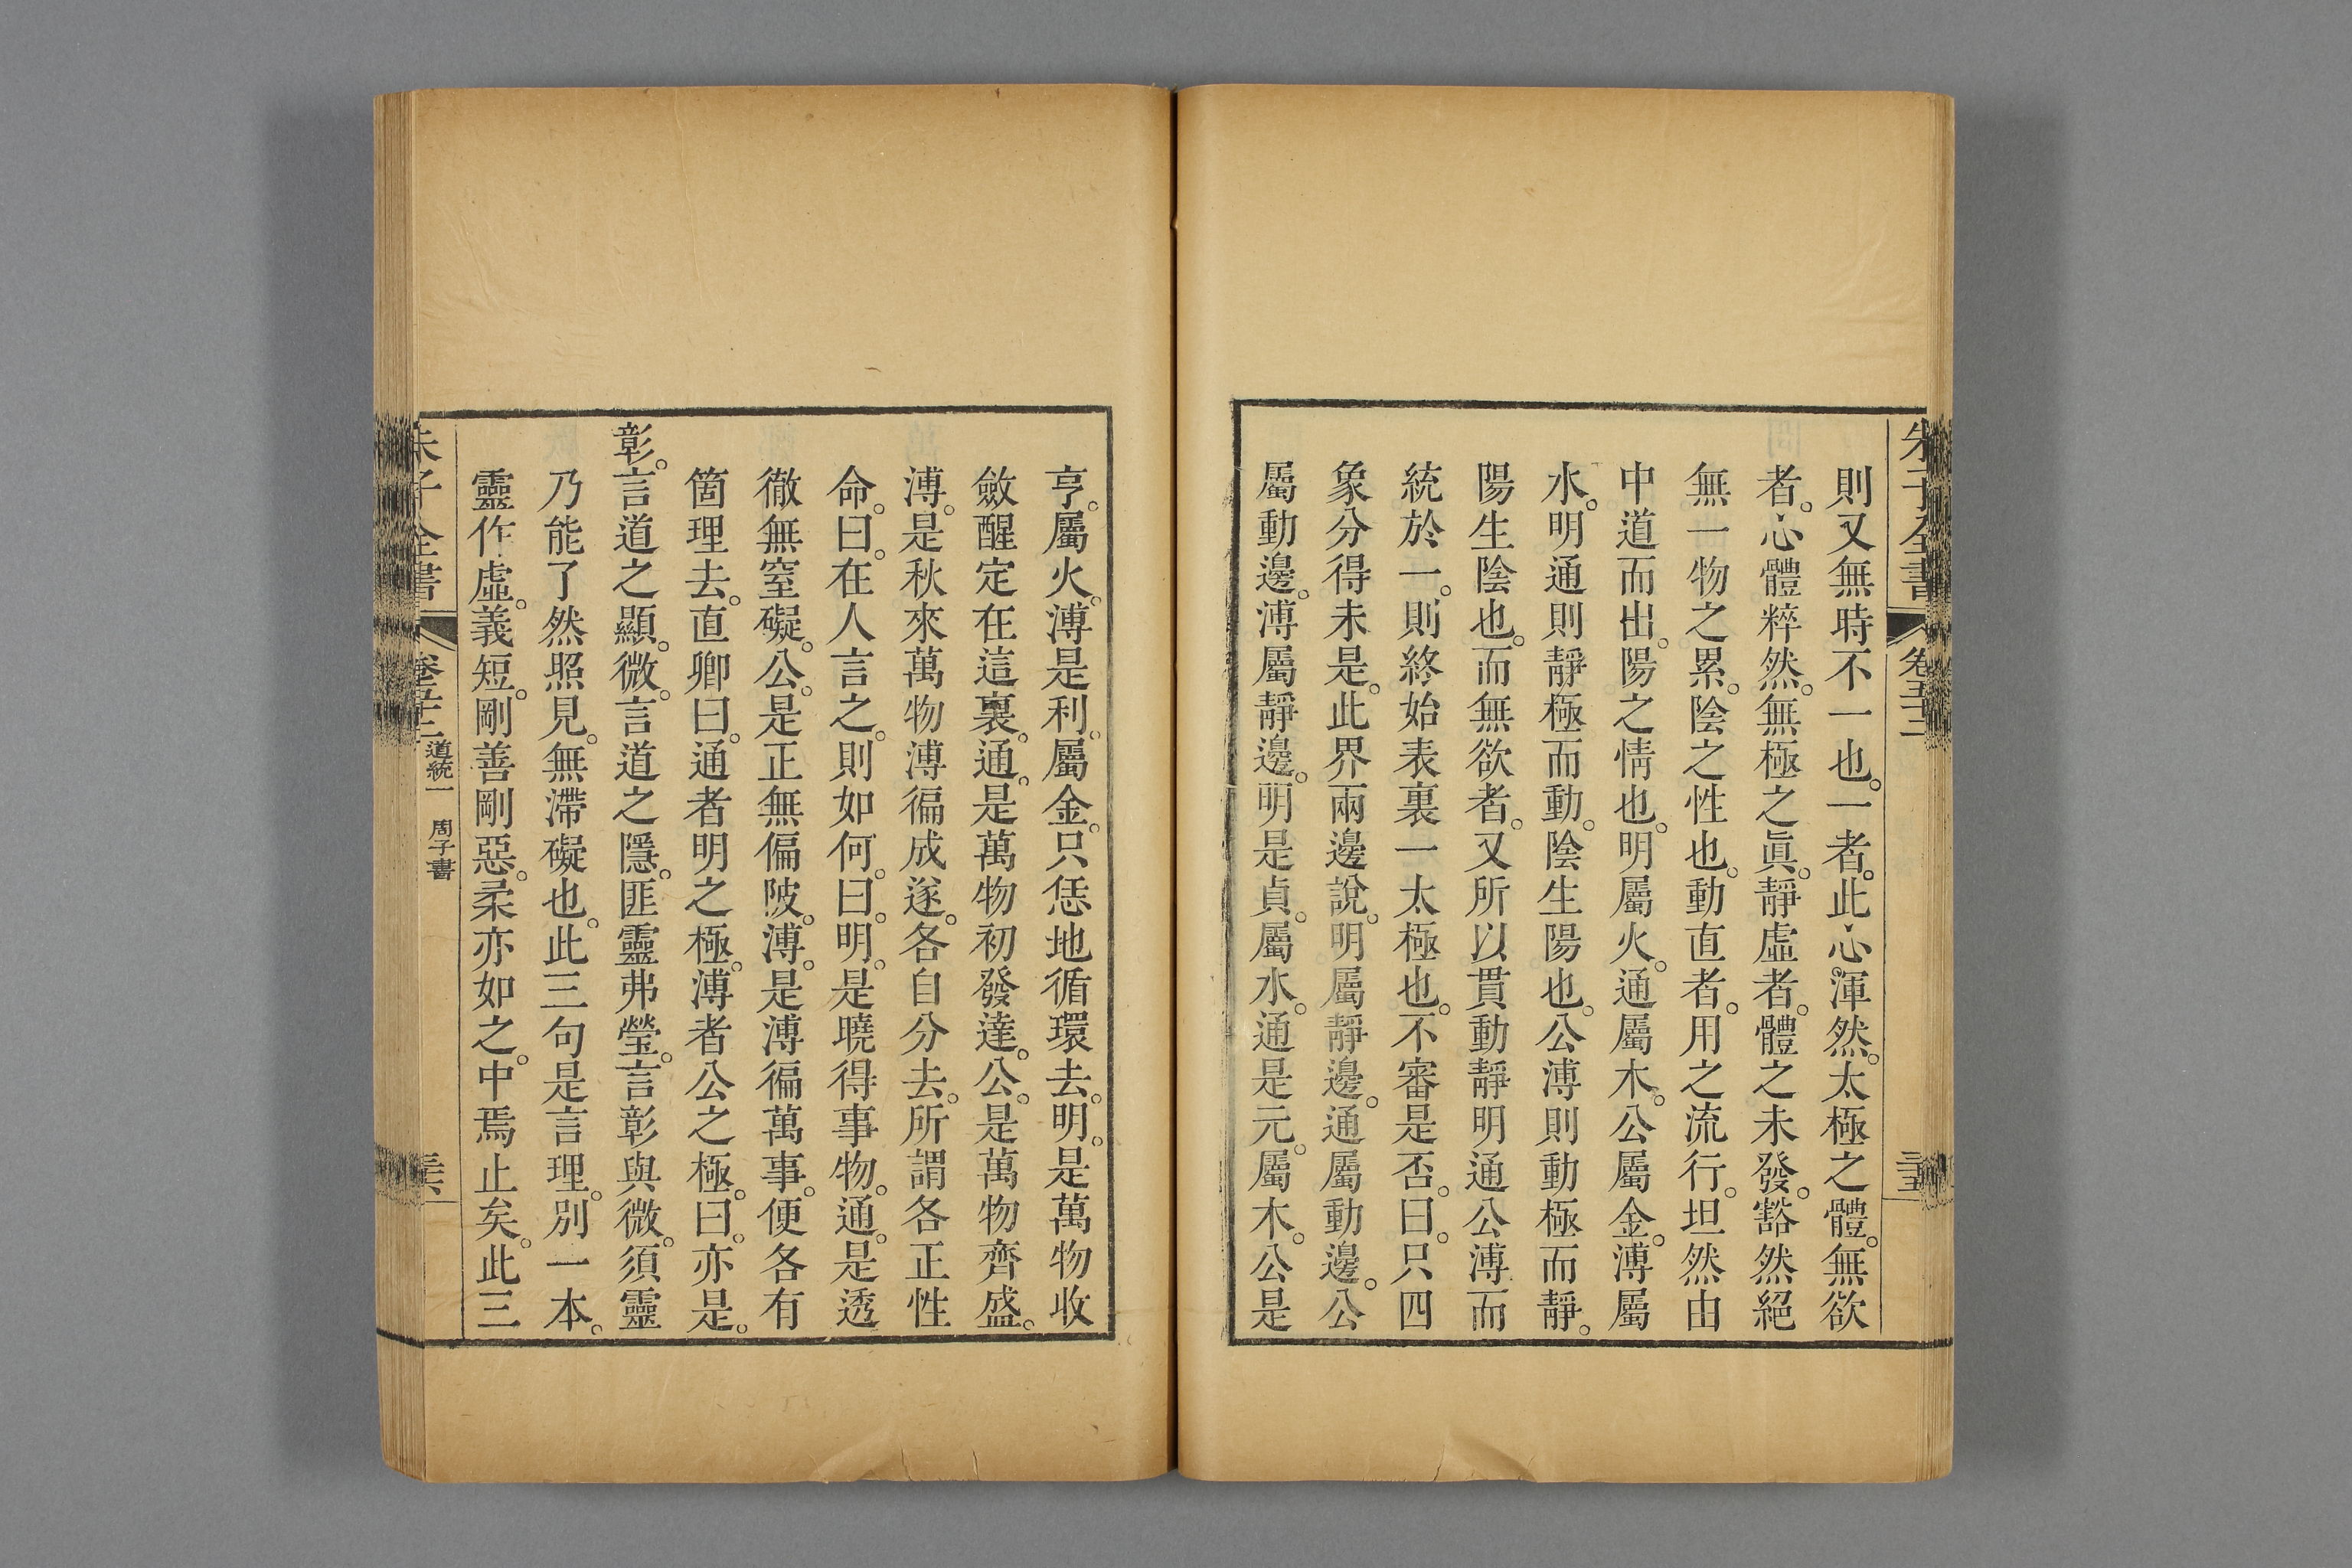 朱子全書 卷五十二 三十五
則又無時不一也。一者。此心渾然。太極之體。無欲
者。心體粹然。無極之眞。靜虛者。體之未發。豁然絕
無一物之累。陰之性也。動直者。用之流行。坦然由
中道而出。陽之情也。明屬火。通屬木。公屬金。溥屬
水。明通則靜極而動。陰生陽也。公溥則動極而靜。
陽生陰也。而無欲者。又所以貫動靜明通公溥而
統於一。則終始表裏一太極也。不審是否。曰。只四
象分得未是。此界兩邊說。明屬靜邊。通屬動邊。公
屬動邊。溥屬靜邊。明是貞。屬水。通是元。屬木。公是
亨。屬火。溥是利。屬金。只恁地循環去。明。是萬物收
斂醒定在這裏。通。是萬物初發達。公。是萬物齊盛。
溥。是秋來萬物溥徧成遂。各自分去。所謂各正性
命。曰。在人言之。則如何。曰。明。是曉得事物。通。是透
徹無窒礙。公。是正無偏陂。溥。是溥徧萬事。便各有
箇理去。直卿曰。通者明之極。溥者公之極。曰。亦是。
彰。言道之顯。微。言道之隱。匪靈弗瑩。言彰與微。須靈
乃能了然照見。無滯礙也。此三句是言理。別一本。
靈作虛。義短。剛善剛惡。柔亦如之。中焉止矣。此三
朱子全書 卷五十二 道統一 周子書 三十六